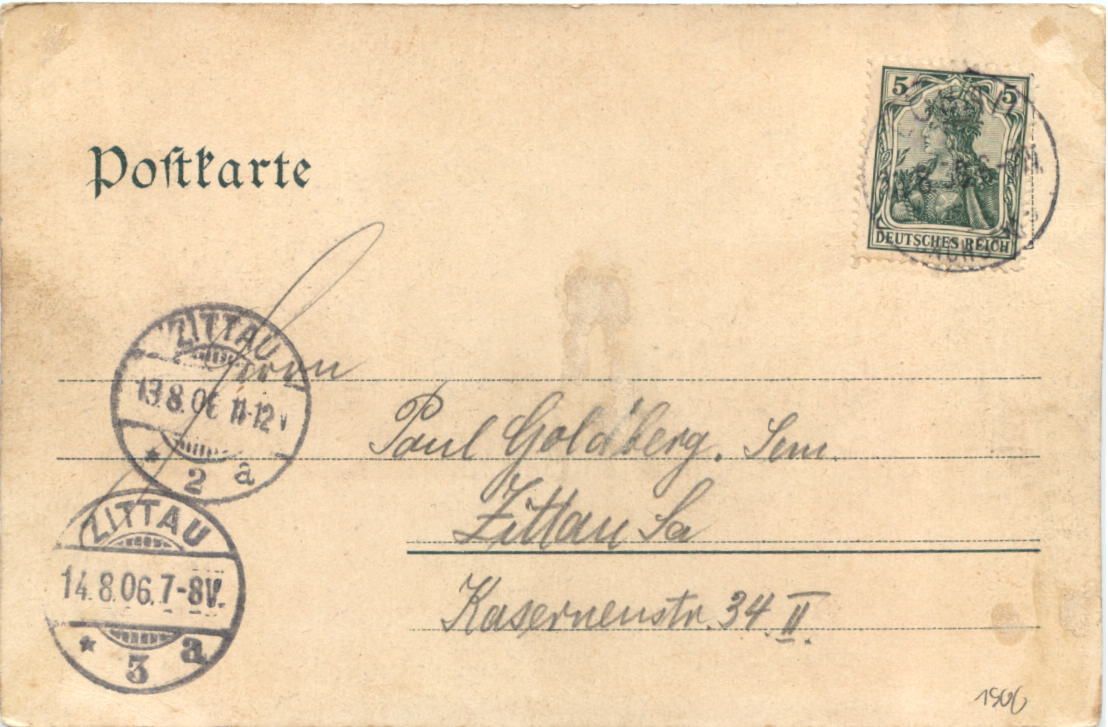 Postkarte
5 5
DEUTSCHES REICH
ZITTAU
13.8.06 11-12V
* 2 a
Herrn
Paul Goldberg. Sem.
Zittau Sa
Kasernenstr. 34 II.
ZITTAU
14.8.06.7-8V.
* 3 a
1906